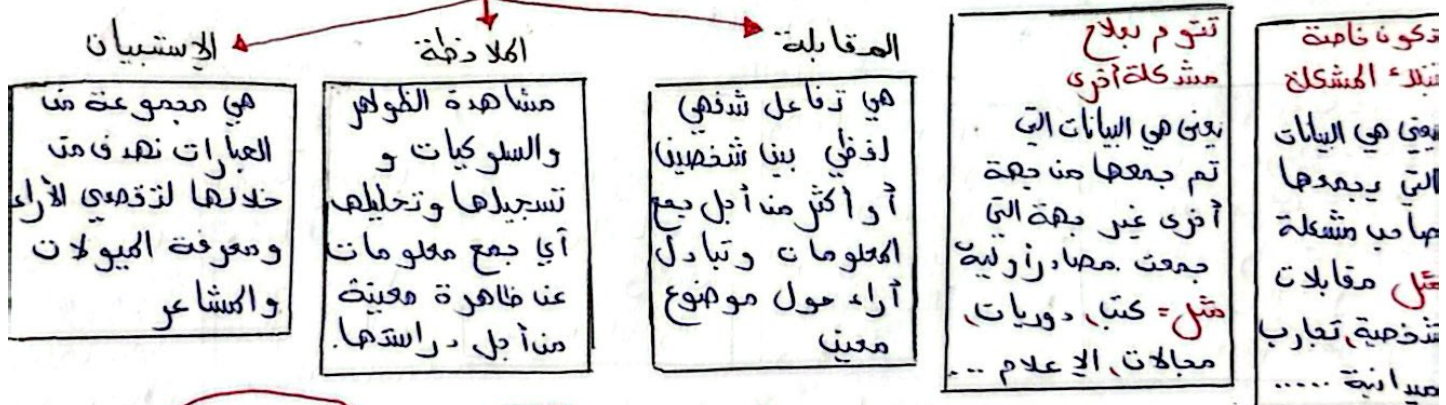 تكون خاصة
بتلك المشكلة
يعني هي البيانات
التي يجمعها
صاحب مشكلة
مثل مقابلات
شخصية، تجارب
ميدانية .....
تقوم بعلاج
مشكلة أخرى
يعني هي البيانات التي
تم جمعها من جهة
أخرى غير جهة التي
جمعت مصادر أولية
مثل = كتب، دوريات،
مجالات، الإعلام ...
المقابلة
هي تفاعل شفهي
لفظي بين شخصين
أو أكثر من أجل جمع
المعلومات وتبادل
أراء حول موضوع
معين
الملاحظة
مشاهدة الظواهر
والسلوكيات و
تسجيلها وتحليلها
أي جمع معلومات
عن ظاهرة معينة
من أجل دراستها.
الإستبيان
هي مجموعة من
العبارات نهدف من
خلالها لتقصي الأراء
ومعرفة الميولات
والمشاعر